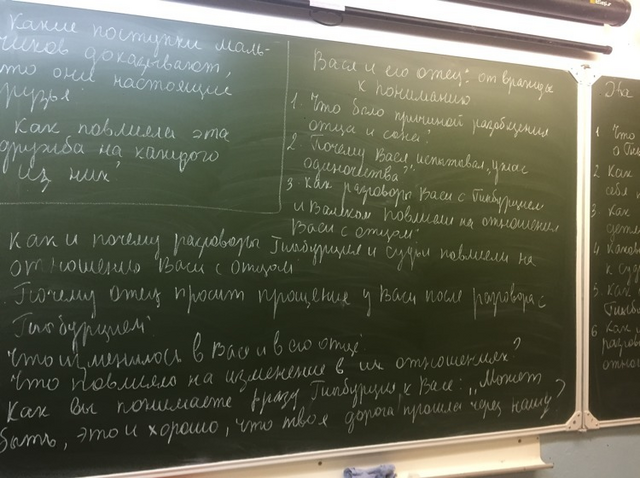 Какие поступки маль-
чиков доказывают,
что они настоящие
друзья?
Как повлияла эта
дружба на каждого
из них?
Вася и его отец: от вражды
к пониманию
1. Что было причиной разобщения
отца и сына?
2. Почему Вася испытывал „ужас
одиночества"?
3. Как разговоры Васи с Тыбурцием
и Валеком повлияли на отношения
Васи с отцом?
Как и почему разговоры Тыбурция и судьи повлияли на
отношению Васи с отцом
Почему отец просит прощение у Васи после разговора с
Тыбурцием?
Что изменилось в Васе и в его отце?
Что повлияло на изменение в их отношениях?
Как вы понимаете фразу Тыбурция к Васе: „Может
быть, это и хорошо, что твоя дорога прошла через нашу?
Два
1 Что
о
2 Как
себя
3 Как
дети
4 Каково
к судье
5 Как
6 Как
разгов
отнош